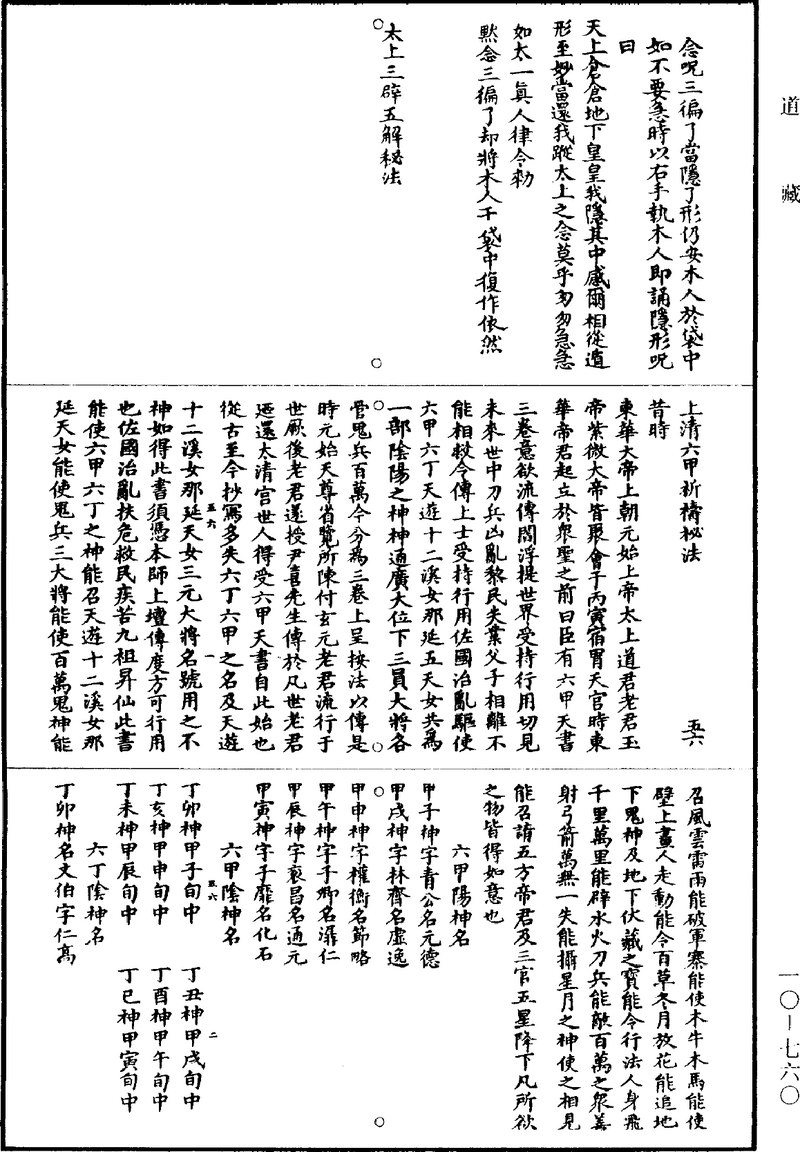 道藏
念呪三徧了當隱了形仍安木人於袋中
如不要急時以右手執木人即誦隱形呪
曰
天上倉倉地下皇皇我隱其中感爾相從道
形至妙當還我蹤太上之念莫乎匆匆急急
如太一眞人律令勑
黙念三徧了却將木人于袋中復作依然
太上三辟五解秘法
上清六甲祈禱秘法
五六
昔時
東華大帝上朝元始上帝太上道君老君玉
帝紫微大帝皆聚會于丙寅宿胃天宮時東
華帝君起立於衆聖之前曰臣有六甲天書
三卷意欲流傳閻浮提世界受持行用切見
未來世中刀兵凶亂黎民失業父子相離不
能相救今傳上士受持行用佐國治亂驅使
六甲六丁天遊十二溪女那延五天女共爲
一部陰陽之神神通廣大位下三員大將各
管鬼兵百萬今分爲三卷上呈按法以傳是
時元始天尊省覽所陳付玄元老君流行于
世厥後老君遂授尹喜先生傳於凡世老君
迺還太清宮世人得受六甲天書自此始也
從古至今抄寫多失六丁六甲之名及天遊
五六
一
十二溪女那延天女三元大將名號用之不
神如得此書須憑本師上壇傳度方可行用
也佐國治亂扶危救民疾苦九祖昇仙此書
能使六甲六丁之神能召天遊十二溪女那
延天女能使鬼兵三大將能使百萬鬼神能
召風雲雷雨能破軍寨能使木牛木馬能使
壁上畫人走動能令百草冬月放花能追地
下鬼神及地下伏藏之寶能令行法人身飛
千里萬里能辟水火刀兵能敵百萬之衆善
射弓箭萬無一失能攝星月之神使之相見
能召請五方帝君及三官五星降下凡所欲
之物皆得如意也
六甲陽神名
甲子神字青公名元德
甲戌神字林齊名虛逸
甲申神字權衡名節略
甲午神字子卿名潺仁
甲辰神字衮昌名通元
甲寅神字子靡名化石
六甲陰神名
五六
二
丁卯神甲子旬中 丁丑神甲戌旬中
丁亥神甲申旬中 丁酉神甲午旬中
丁未神甲辰旬中 丁巳神甲寅旬中
六丁陰神名
丁卯神名文伯字仁高
一〇—七六〇